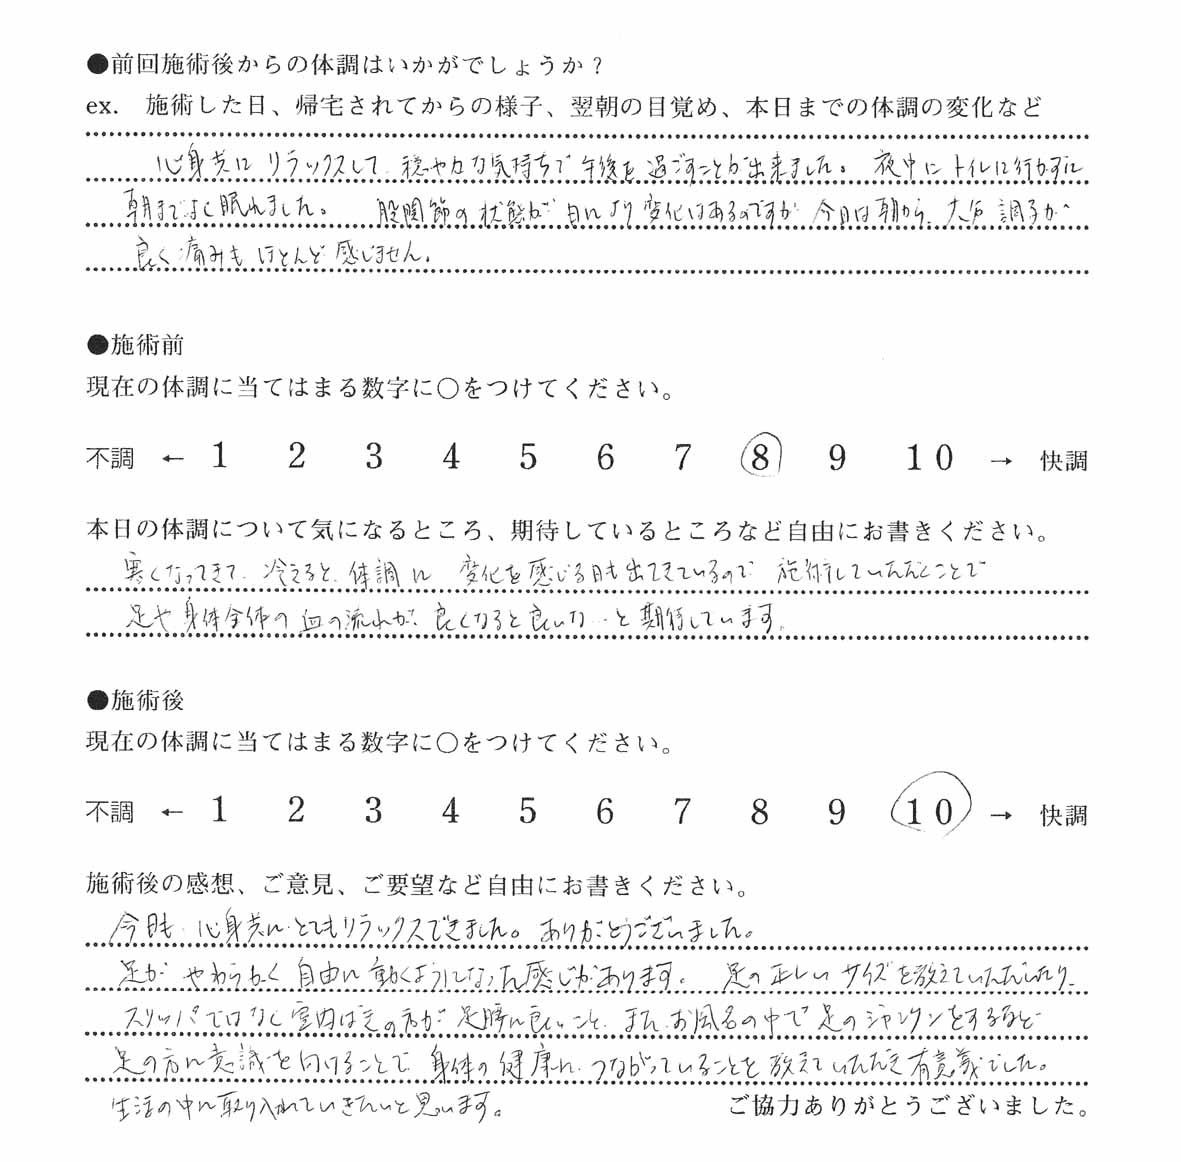 ●前回施術後からの体調はいかがでしょうか？
ex.　施術した日、帰宅されてからの様子、翌朝の目覚め、本日までの体調の変化など
心身共に リラックスして 穏やかな気持ちで 午後を 過ごすことが出来ました。 夜中に トイレに行かずに
朝までよく眠れました。 股関節の 状態が 日により 変化はあるのですが 今日は朝から、大分 調子が
良く 痛みも ほとんど 感じません。
●施術前
現在の体調に当てはまる数字に○をつけてください。
不調 ← 1 2 3 4 5 6 7 8 9 10 → 快調
本日の体調について気になるところ、期待しているところなど自由にお書きください。
寒くなってきて、冷えると、体調に 変化を 感じる日も出てきているので 施術していただくことで
足や 身体全体の 血の流れが、良くなると良いな…と 期待しています。
●施術後
現在の体調に当てはまる数字に○をつけてください。
不調 ← 1 2 3 4 5 6 7 8 9 10 → 快調
施術後の感想、ご意見、ご要望など自由にお書きください。
今日も 心身共に とてもリラックスできました。ありがとうございました。
足が やわらかく 自由に 動くようになった感じがあります。 足の 正しい サイズを教えていただいたり、
スリッパではなく 室内ばきの方が 足腰に良いこと、また、お風呂の中で 足の をするなど
足の方に意識を向けることで 身体の 健康に つながっていることを 教えていただき 有意義でした。
生活の中に取り入れていきたいと思います。
ご協力ありがとうございました。